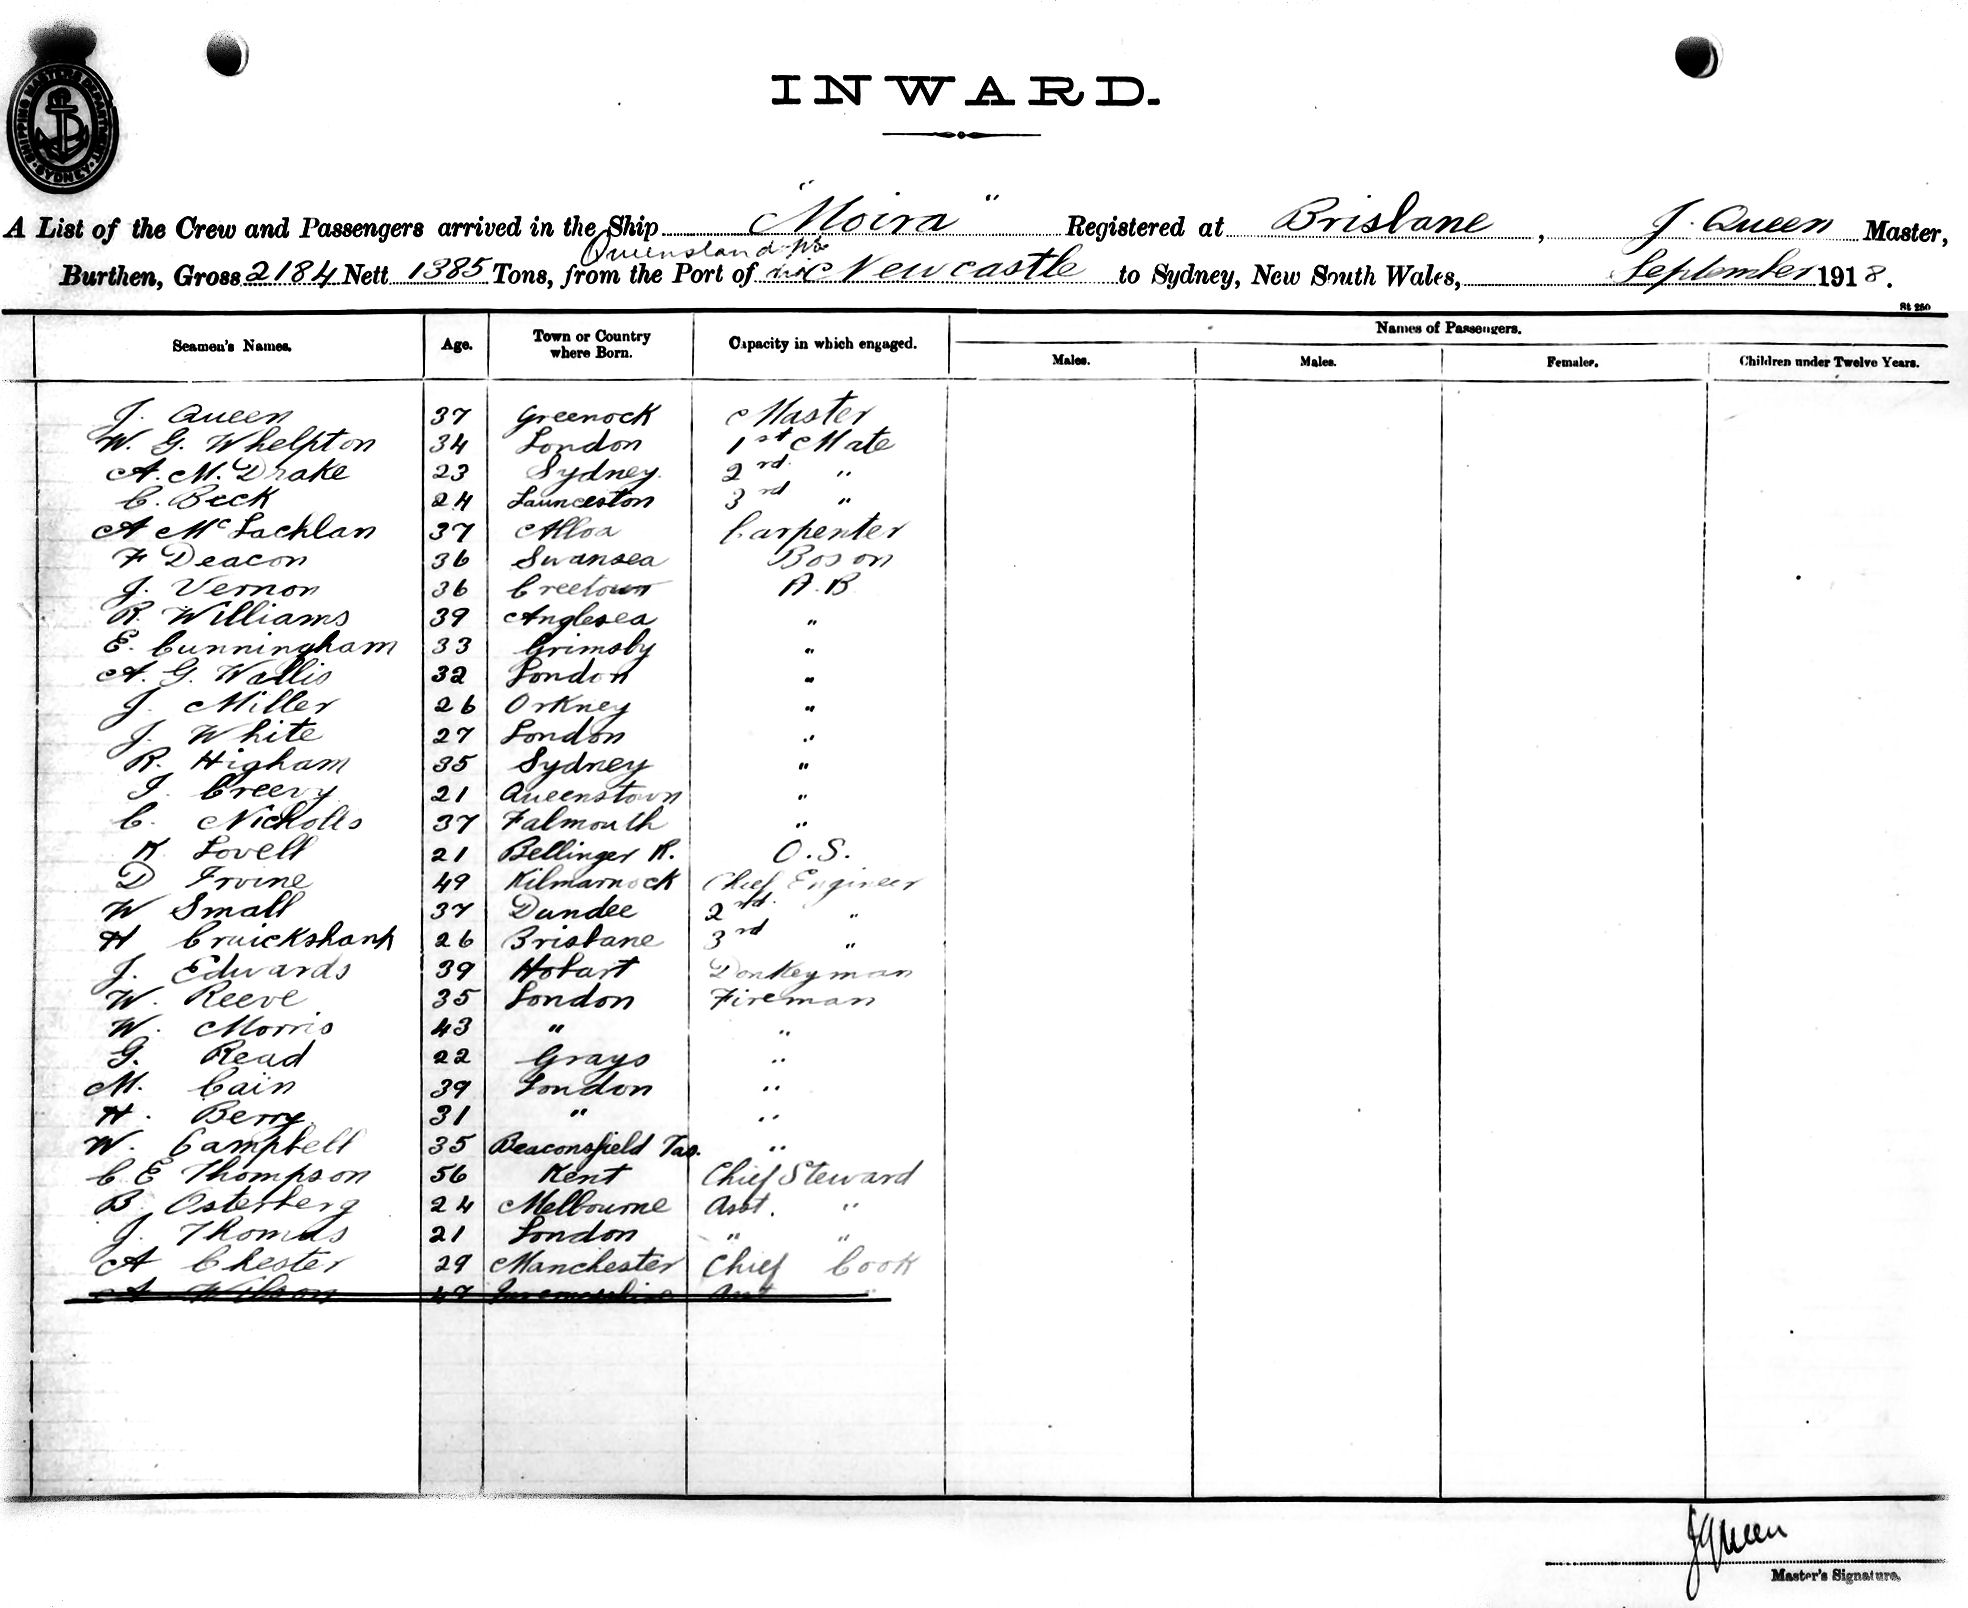 SHIPPING MASTERS DEPARTMENT
SYDNEY
INWARD.
A List of the Crew and Passengers arrived in the Ship "Moira" Registered at Brisbane, J. Queen Master,
Queensland
Burthen, Gross 2184 Nett 1385 Tons, from the Port of Newcastle to Sydney, New South Wales, September 1918.
St 250
Seamen's Names. Age. Town or Country where Born. Capacity in which engaged. Names of Passengers.
Males. Males. Females. Children under Twelve Years.
J. Queen 37 Greenock Master
W. G. Whelpton 34 London 1st Mate
A. M. Drake 23 Sydney. 2rd "
C. Beck 24 Launceston 3rd "
A McLachlan 37 Alloa Carpenter
F Deacon 36 Swansea Boson
J. Vernon 36 Creetown A.B
R. Williams 39 Anglesea "
E. Cunningham 33 Grimsby "
A. G. Wallis 32 London "
J. Miller 26 Orkney "
J. White 27 London "
R. Higham 35 Sydney "
J. Creevy 21 Queenstown "
C. Nicholls 37 Falmouth "
K Lovell 21 Bellinger R. O.S.
D Irvine 49 Kilmarnock Chief Engineer
W Small 37 Dundee 2nd "
H Cruickshank 26 Brisbane 3rd "
J. Edwards 39 Hobart Donkeyman
W. Reeve 35 London Fireman
W. Morris 43 " "
G. Read 22 Grays "
M. Cain 39 London "
H. Berry 31 " "
W. Campbell 35 Beaconsfield Tas. "
C E Thompson 56 Kent Chief Steward
B. Osterberg 24 Melbourne Asst. "
J. Thomas 21 London " "
A Chester 29 Manchester Chief Cook
A Wilson 47 Asst "
J Queen
Master's Signature.